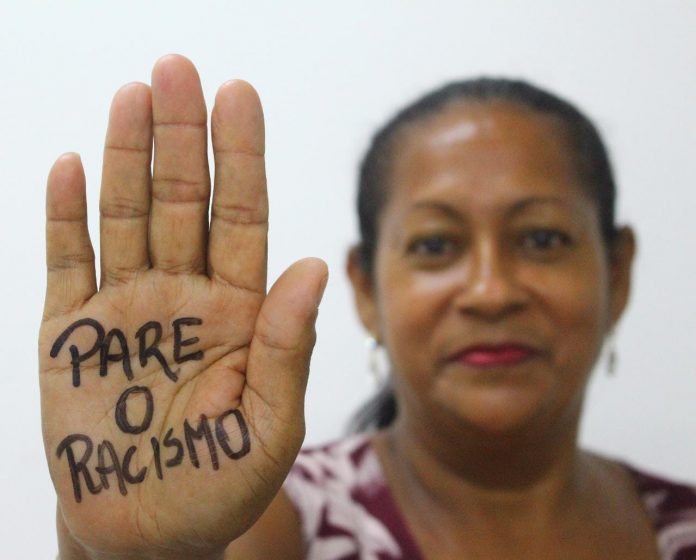 PARE
O
RACISMO